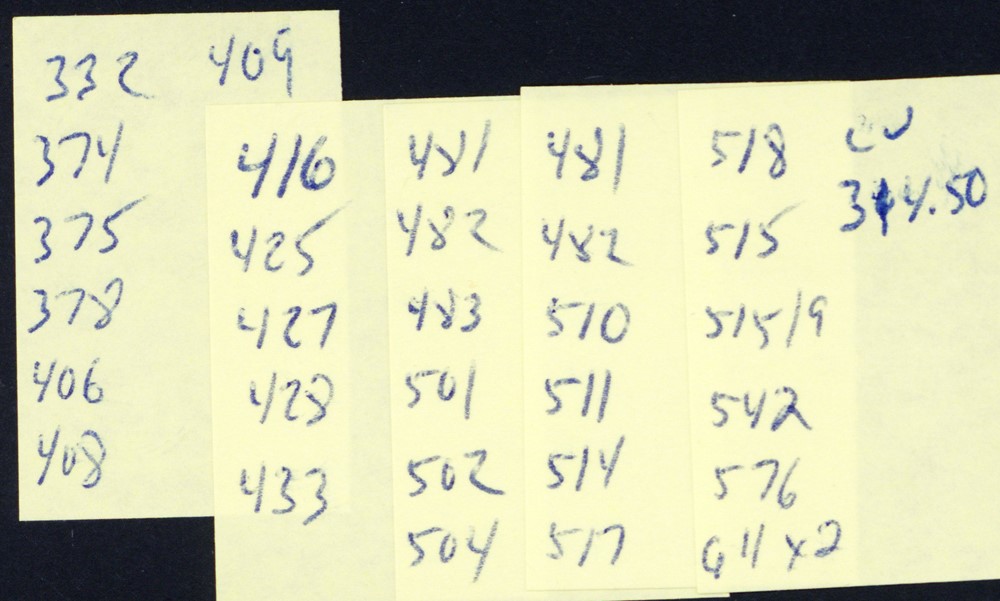 332 409
374
375
378
406
408
416
425
427
428
433
481
482
483
501
502
504
481
482
510
511
514
517
518
515
515/9
542
576
611 x2
314.50